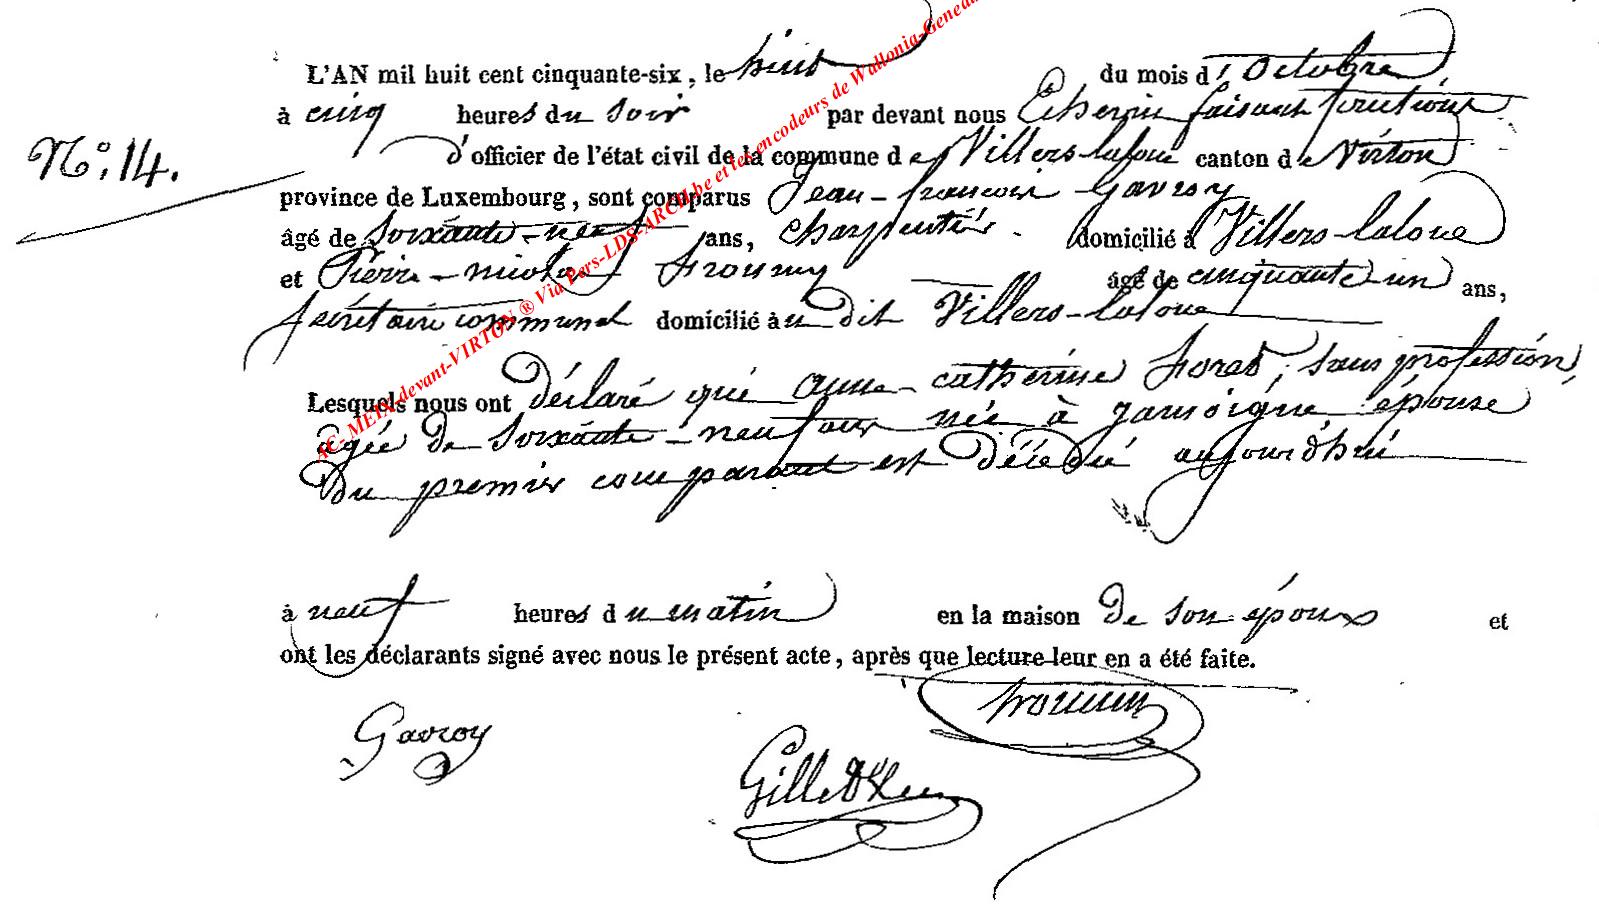 L'AN mil huit cent cinquante-six, le huit du mois d'Octobre
à cinq heures du soir par devant nous Echevin faisant fonctions
N°. 14.
d'officier de l'état civil de la commune de Villers-laloue canton de Virton
province de Luxembourg, sont comparus Jean-françois Gavroy
âgé de soixante-neuf ans, charpentier domicilié à Villers-laloue
et Pierre-nicolas âgé de cinquante un ans,
secrétaire communal domicilié au dit Villers-laloue
Lesquels nous ont déclaré que anne-catherine, sans profession,
agée de soixante-neuf ans née à jamoigne épouse
du premier comparant est décédée aujourd'hui
à neuf heures du matin en la maison de son époux et
ont les déclarants signé avec nous le présent acte, après que lecture leur en a été faite.
Gavroy
AC-MEIX-devant-VIRTON ® Via Pers-LDS-ARCH.be et les encodeurs de Wallonia-Genea